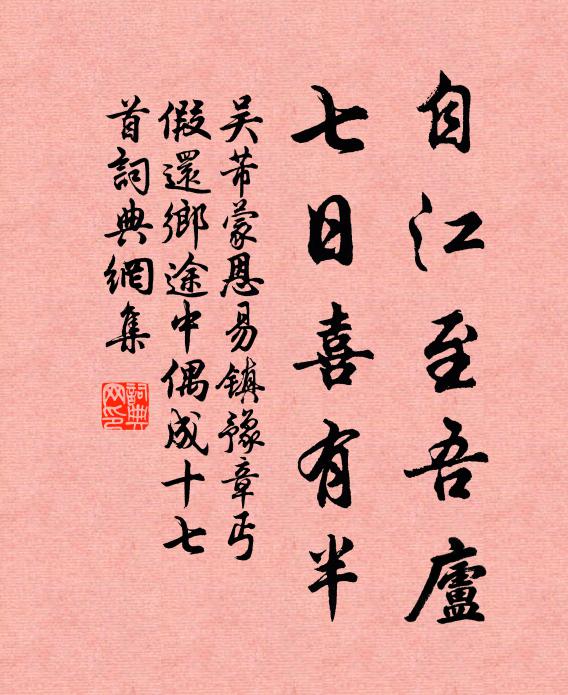 自江至吾廬
七日喜有半
吴芾蒙恩易鎮豫章丐
假還鄉途中偶成十七
首詞典網集
詞典
网印